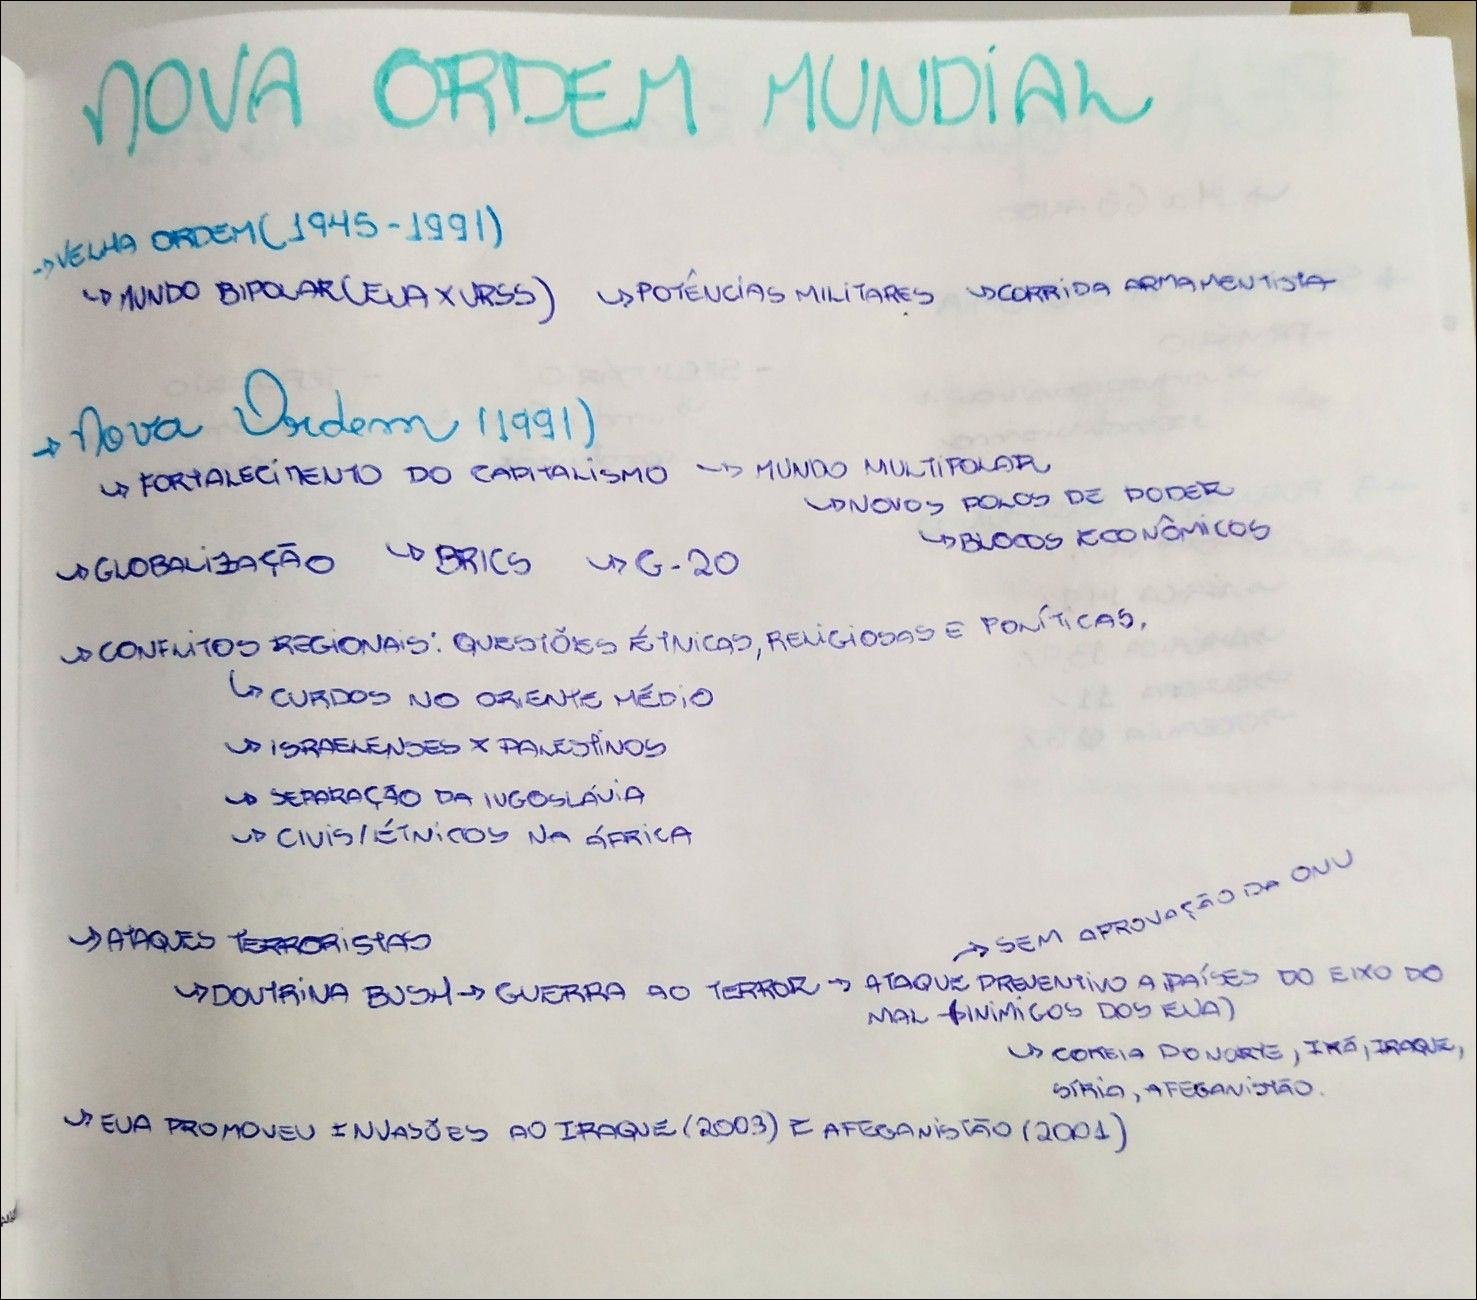 NOVA ORDEM MUNDIAL
→ VELHA ORDEM (1945-1991)
↳ MUNDO BIPOLAR (EUA X URSS) ↳ POTÊNCIAS MILITARES ↳ CORRIDA ARMAMENTISTA
→ Nova Ordem (1991)
↳ FORTALECIMENTO DO CAPITALISMO ↳ MUNDO MULTIPOLAR
↳ NOVOS POLOS DE PODER
↳ BLOCOS ECONÔMICOS
↳ GLOBALIZAÇÃO ↳ BRICS ↳ G-20
↳ CONFLITOS REGIONAIS: QUESTÕES ÉTNICAS, RELIGIOSAS E POLÍTICAS,
↳ CURDOS NO ORIENTE MÉDIO
↳ ISRAELENSES X PALESTINOS
↳ SEPARAÇÃO DA IUGOSLÁVIA
↳ CIVIS/ÉTNICOS NA ÁFRICA
↳ ATAQUES TERRORISTAS
→ SEM APROVAÇÃO DA ONU
↳ DOUTRINA BUSH → GUERRA AO TERROR → ATAQUE PREVENTIVO A PAÍSES DO EIXO DO
MAL (INIMIGOS DOS EUA)
↳ COREIA DO NORTE, IRÃ, IRAQUE,
SÍRIA, AFEGANISTÃO.
↳ EUA PROMOVEU INVASÕES AO IRAQUE (2003) E AFEGANISTÃO (2001)